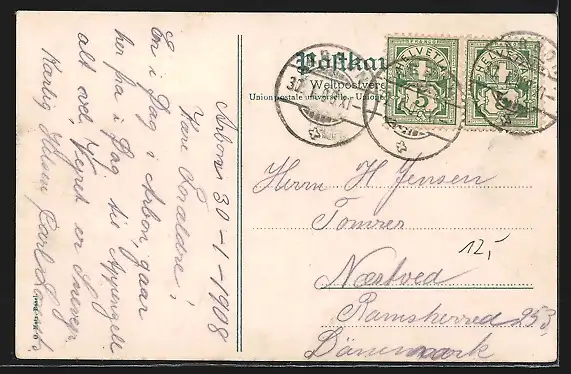 Arbon 30-1-1908
Kære Forældre!
En i Dag i Arbon, gaar
her fra i Dag til Appenzell
alt vel. Vejret er Snevejr
Kærlig Hilsen Carl
Postkar
Weltpostvere
Union postale universelle. - Union
HELVETIA
5
HELVETIA
30.
Herrn H Jensen
Tømrer
12,-
Næstved
Ramsherred 253,
Dänemark